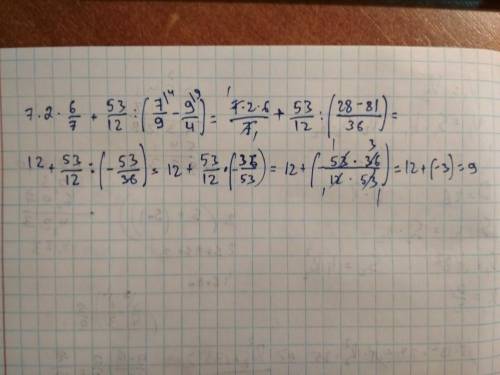 7·2·6/7 + 53/12 : (7/9 \4 − 9/4 \9) = 7·2·6/7 + 53/12 : (28−81/36) =
12 + 53/12 : (−53/36) = 12 + 53/12 · (−36/53) = 12 + (−53·36/12·53) = 12 + (−3) = 9